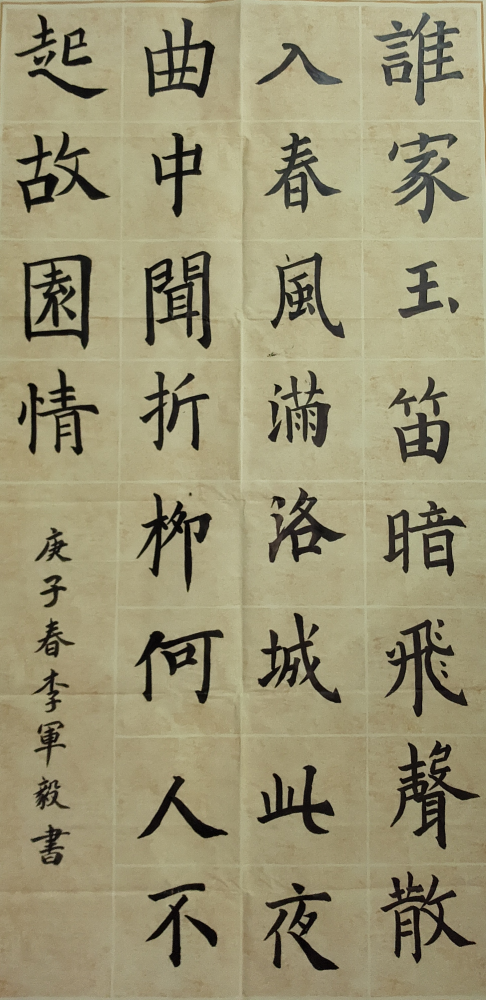 誰家玉笛暗飛聲散
入春風滿洛城此夜
曲中聞折柳何人不
起故園情
庚子春李軍毅書